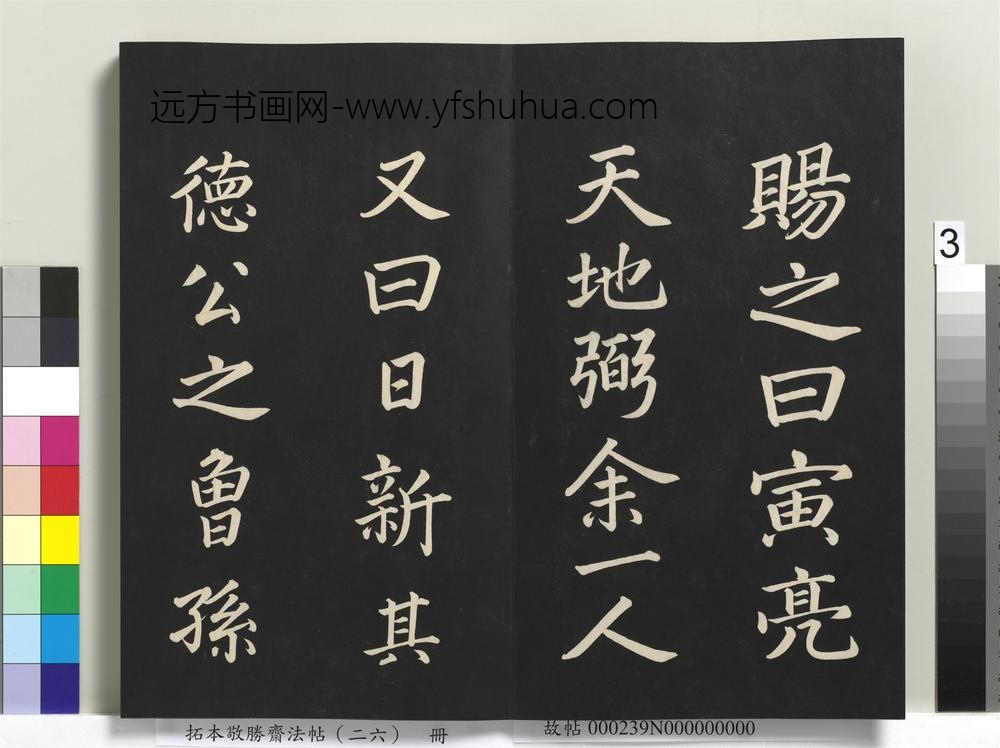 远方书画网-www.yfshuhua.com
賜之曰寅亮
天地弼余一人
又曰日新其
德公之魯孫
3
拓本敬勝齋法帖（二六） 冊
故帖 000239N000000000